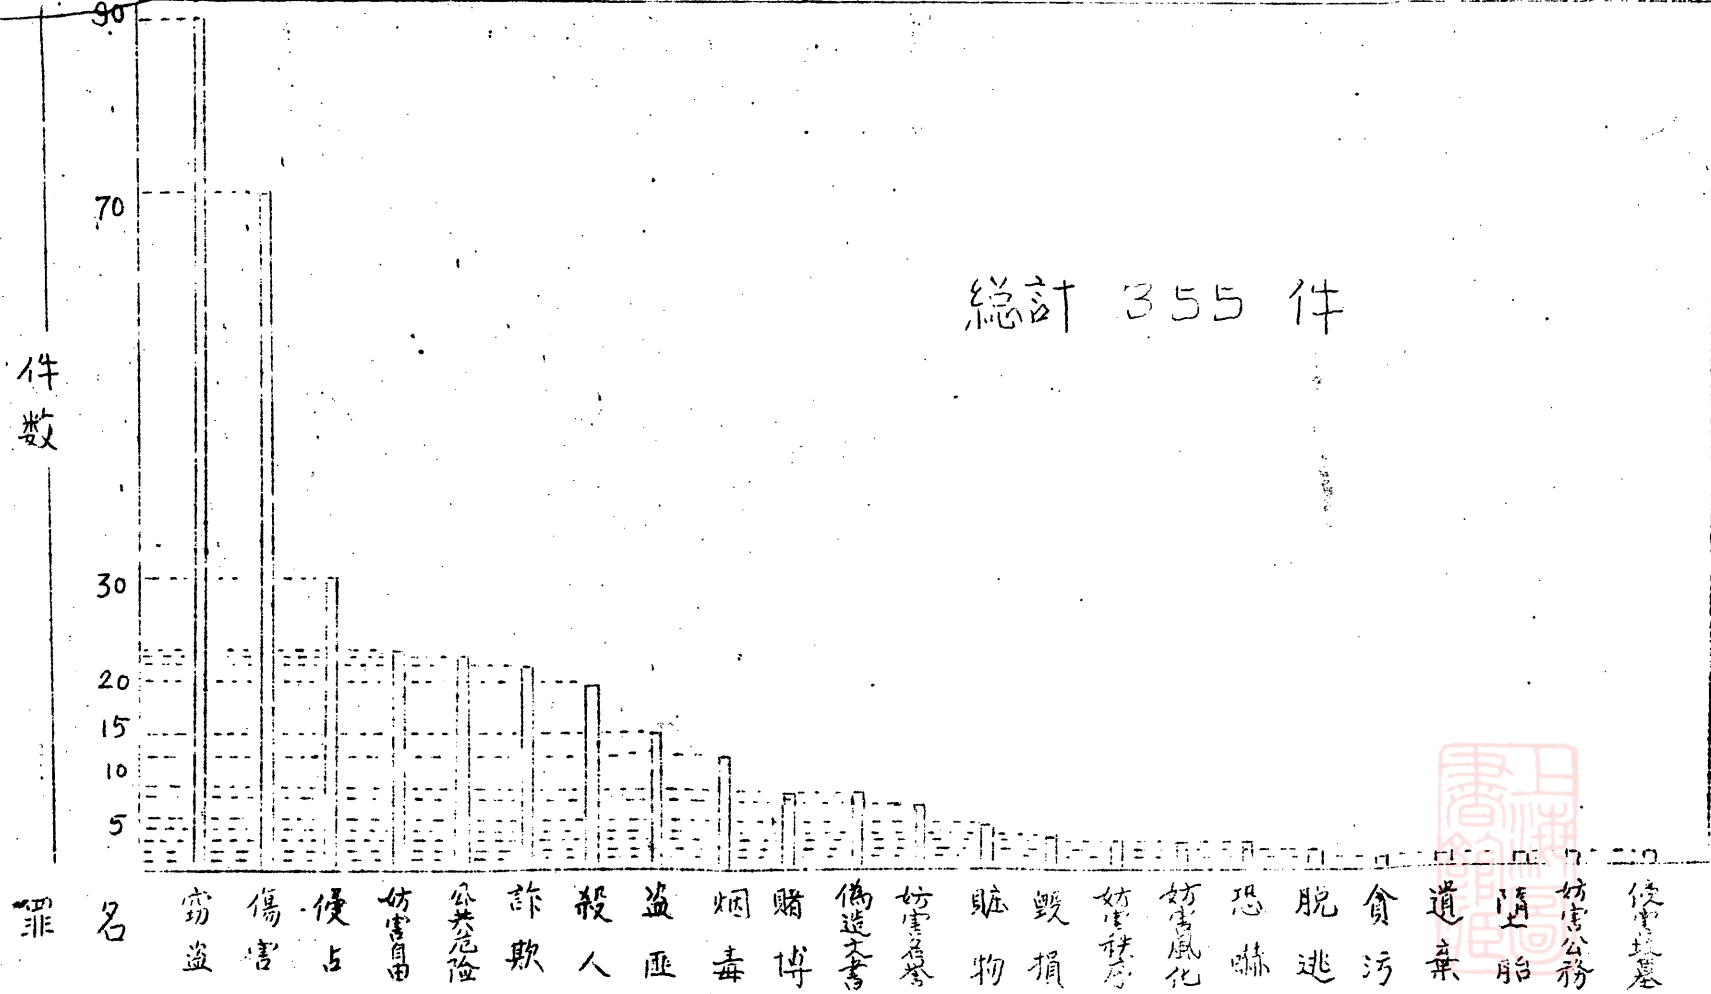 90
70
30
20
15
10
5
件数
総計 355 件
罪名
窃盗
傷害
侵占
妨害自由
公共危险
詐欺
殺人
盗匪
烟毒
賭博
偽造文書
妨害名誉
賍物
毀損
妨害秩序
妨害風化
恐嚇
脱逃
貪污
遺棄
墮胎
妨害公務
侵害坟墓
上海圖書館藏